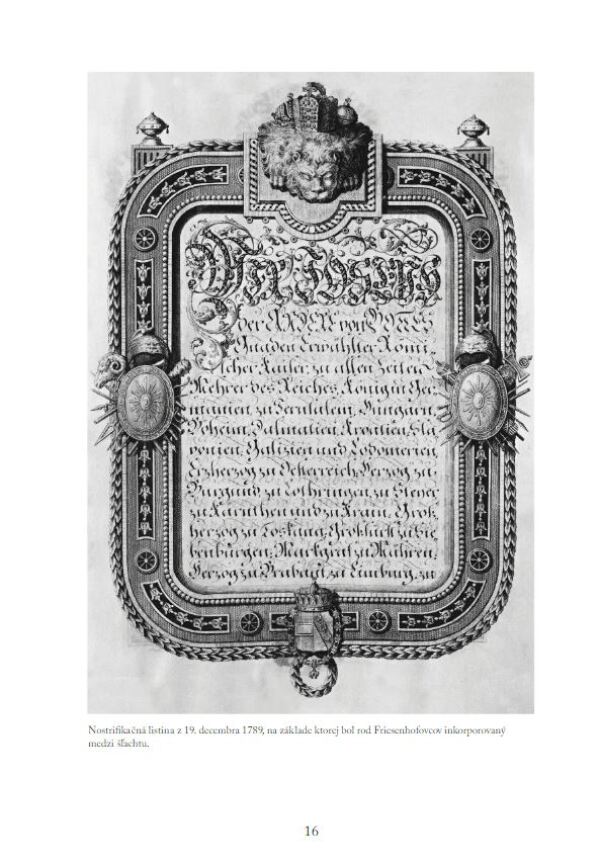 Wir JOSEPH
der ANDERE von GOTTES
Gnaden Erwählter Römi=
scher Kaiser, zu allen Zeiten
Mehrer des Reiches, König in Ger=
manien, zu Jerusalem, Hungarn,
Böheim, Dalmatien, Kroatien, Sla=
vonien, Galizien und Lodomerien,
Erzherzog zu Oesterreich, Herzog zu
Burgund, zu Lothringen, zu Steyer,
zu Kärnthen und zu Krain, Groß=
herzog zu Toskana, Großfürst zu Sie=
benbürgen, Markgraf zu Mähren,
Herzog zu Braband, zu Limburg, zu
Nostrifikačná listina z 19. decembra 1789, na základe ktorej bol rod Friesenhofovcov inkorporovaný
medzi šľachtu.
16